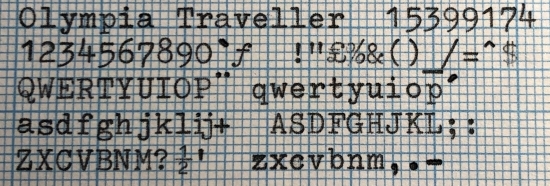 Olympia Traveller 15399174
1234567890`ƒ !"£%&()_/=^$
QWERTYUIOP¨ qwertyuiop´
asdfghjklij+ ASDFGHJKL;:
ZXCVBNM?½' zxcvbnm,.-